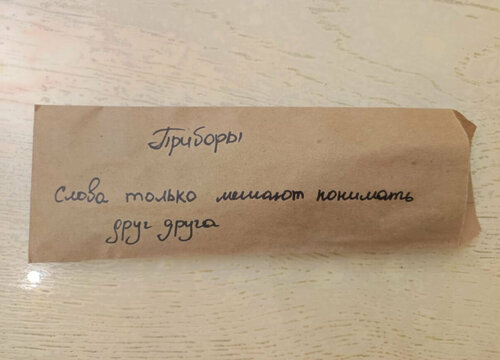 Приборы
Слова только мешают понимать
друг друга